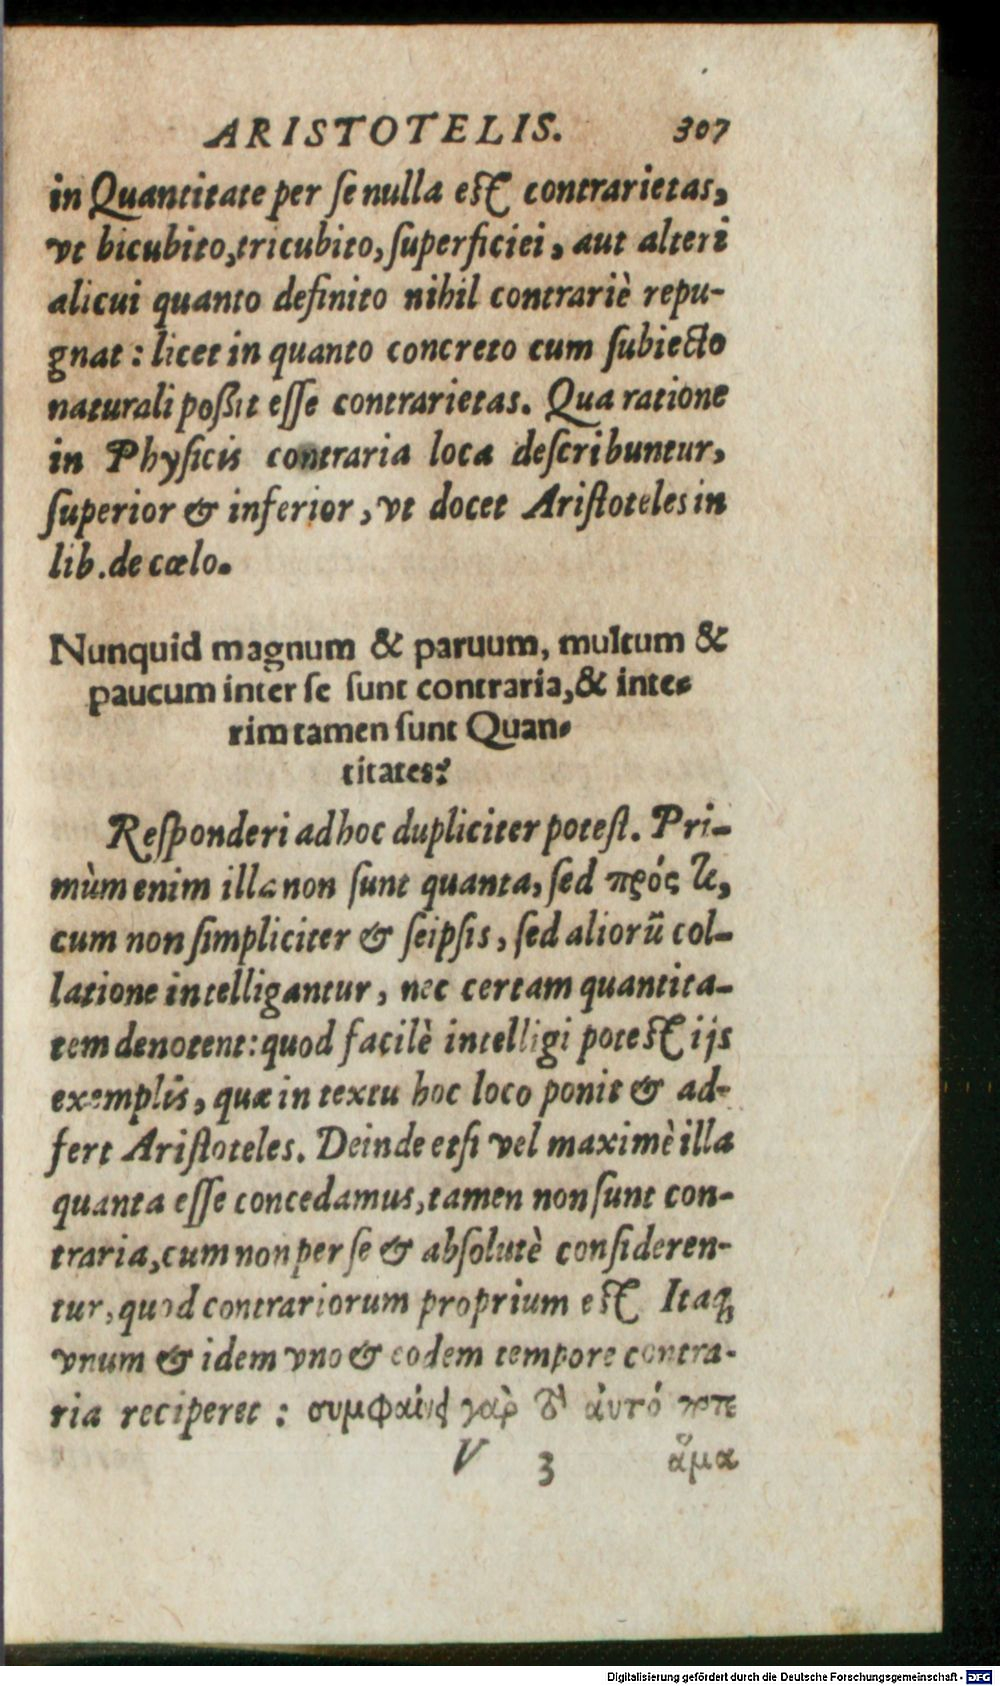 ARISTOTELIS. 307
in Quantitate per se nulla est contrarietas,
vt bicubito, tricubito, superficiei, aut alteri
alicui quanto definito nihil contrariè repu-
gnat: licet in quanto concreto cum subiecto
naturali poßit esse contrarietas. Qua ratione
in Physicis contraria loca describuntur,
superior & inferior, vt docet Aristoteles in
lib. de cœlo.
Nunquid magnum & paruum, multum &
paucum inter se sunt contraria, & inte-
rim tamen sunt Quan-
titates?
Responderi ad hoc dupliciter potest. Pri-
mùm enim illa non sunt quanta, sed πρός τι,
cum non simpliciter & seipsis, sed aliorũ col-
latione intelligantur, nec certam quantita-
tem denotent: quod facilè intelligi potest ijs
exemplis, quæ in textu hoc loco ponit & ad-
fert Aristoteles. Deinde etsi vel maximè illa
quanta esse concedamus, tamen non sunt con-
traria, cum non per se & absolutè consideren-
tur, quod contrariorum proprium est. Itaq;
vnum & idem vno & eodem tempore contra-
ria reciperet: συμφαίνει γὰρ αὐτό
V 3 ἅμα
Digitalisierung gefördert durch die Deutsche Forschungsgemeinschaft - DFG